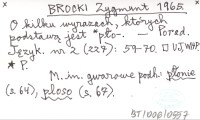 BROCKI Zygmunt 1965
O kilku wyrazach, których
podstawą jest *pło-. — Porad.
Język. nr 2 (227): 59-70. □ UJ, WHP,
* P.
M. in. gwarowe podh. płonie
(s. 64), płoso (s. 67).
BT/000/0557